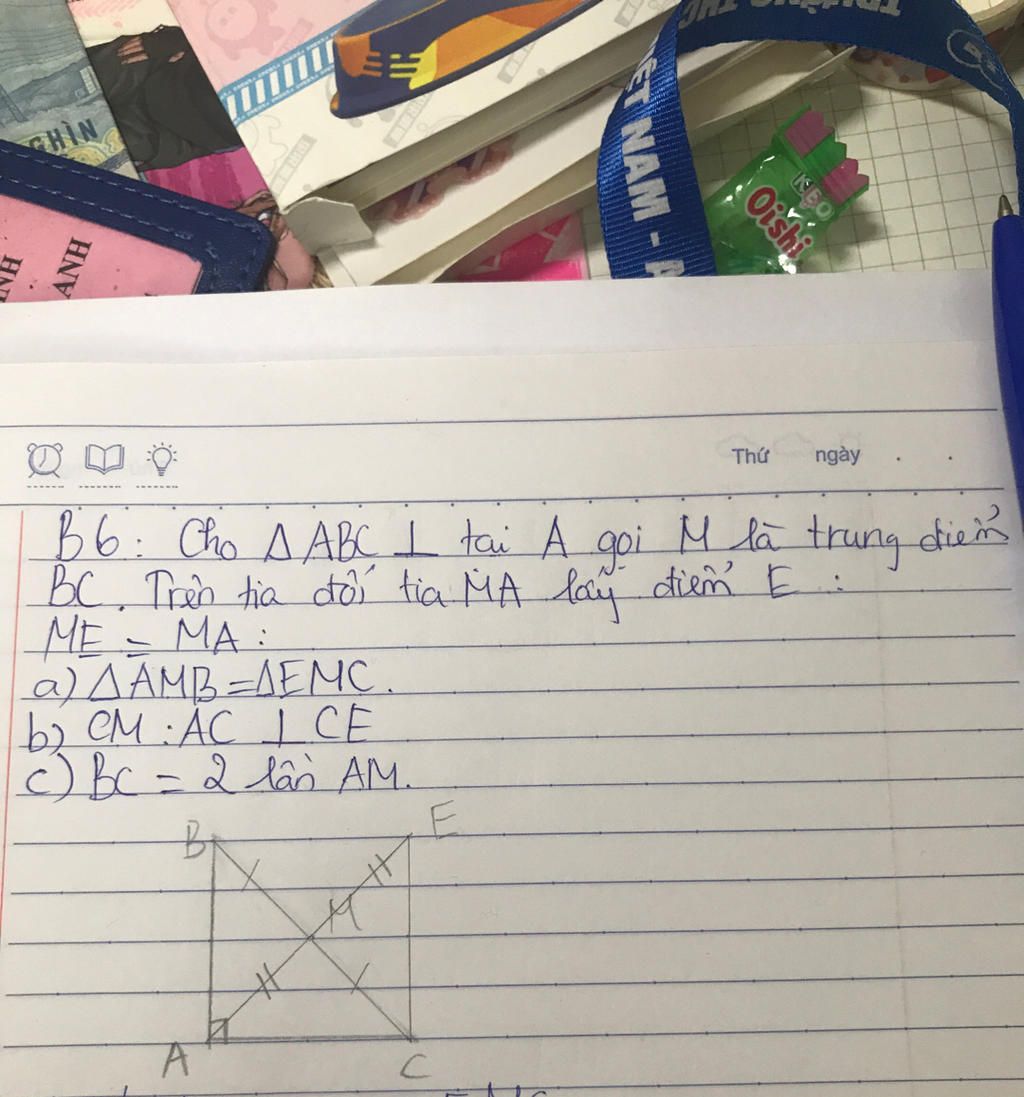 GHÌN
ANH
TRƯỜNG
VIỆT NAM - A
KẸO
Oishi
Thứ ngày
B6: Cho Δ ABC ⊥ tai A gọi M là trung điểm
BC. Trên tia đối tia MA lấy điểm E :
ME = MA :
a) Δ AMB = Δ EMC.
b) CM : AC ⊥ CE
c) BC = 2 lần AM.
B E
M
A C